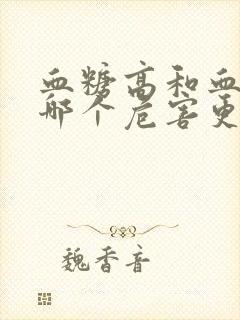 血糖高和血
那个危害更
魏香音